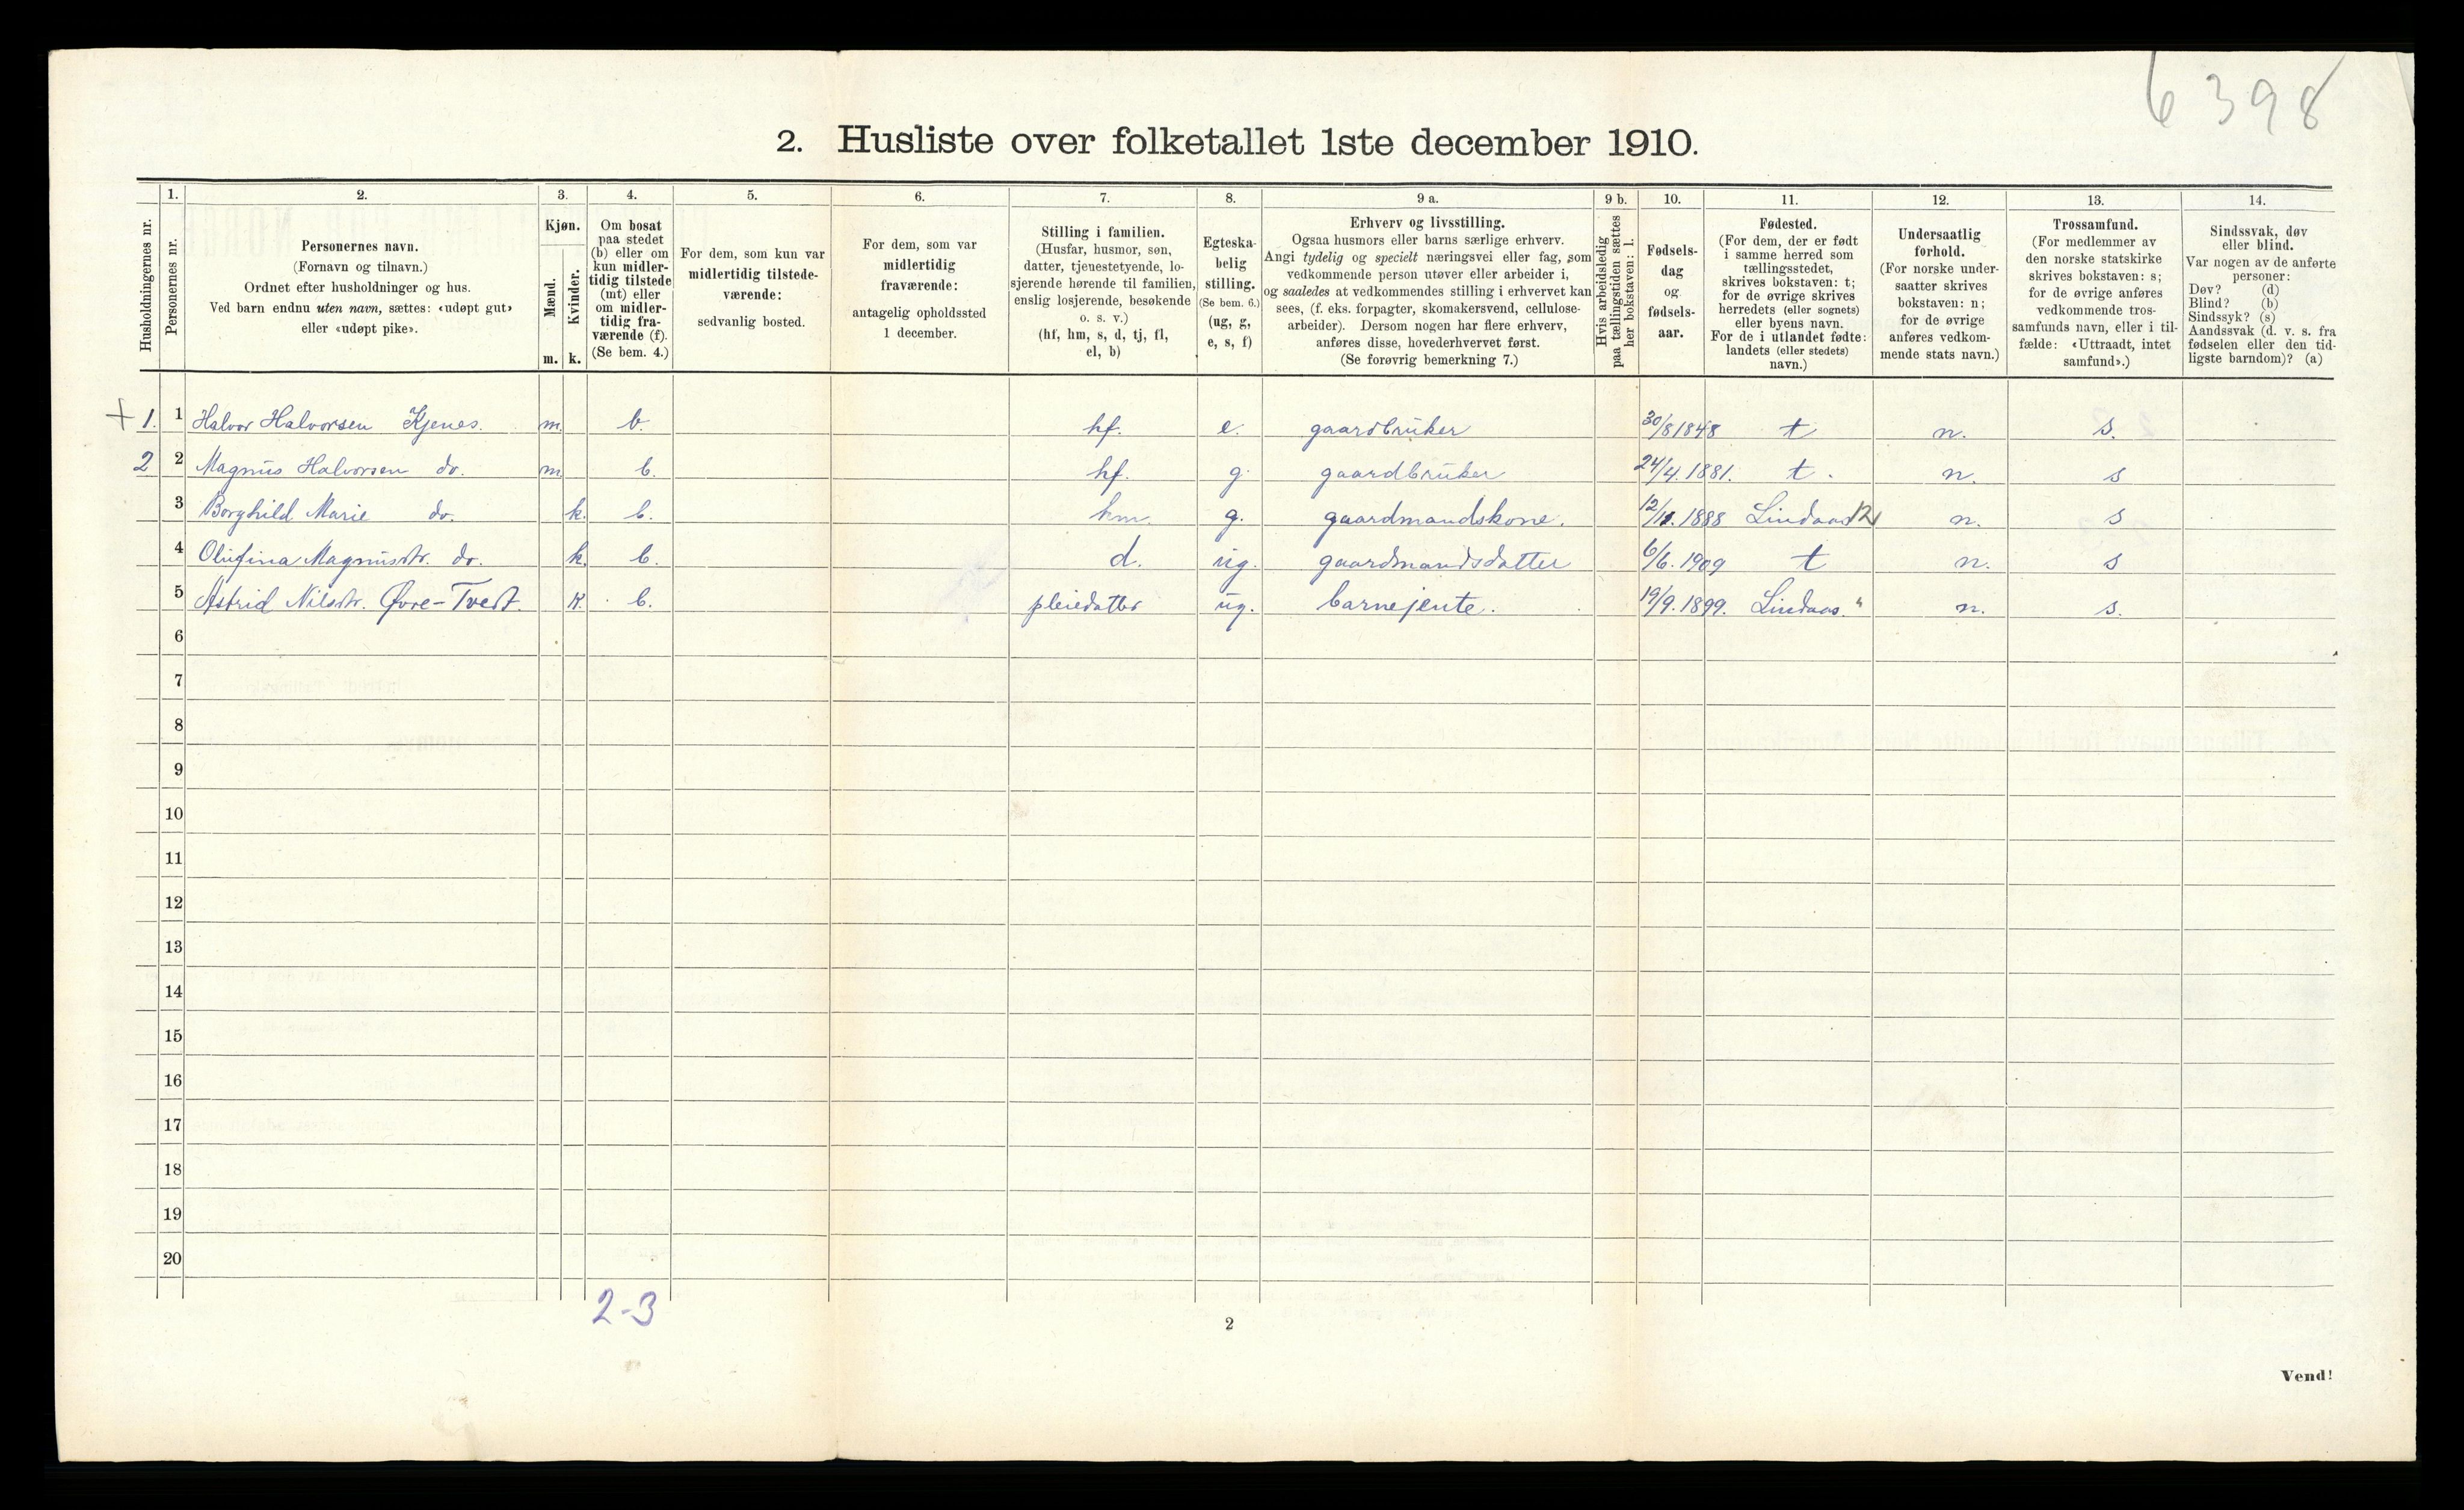 6398
2. Husliste over folketallet 1ste december 1910.
Husholdningernes nr.
1. Personernes nr.
2. Personernes navn.
(Fornavn og tilnavn.)
Ordnet efter husholdninger og hus.
Ved barn endnu uten navn, sættes: «udøpt gut»
eller «udøpt pike».
3. Kjøn.
Mænd. m.
Kvinder. k.
4. Om bosat
paa stedet
(b) eller om
kun midler-
tidig tilstede
(mt) eller
om midler-
tidig fra-
værende (f).
(Se bem. 4.)
5. For dem, som kun var
midlertidig tilstede-
værende:
sedvanlig bosted.
6. For dem, som var
midlertidig
fraværende:
antagelig opholdssted
1 december.
7. Stilling i familien.
(Husfar, husmor, søn,
datter, tjenestetyende, lo-
sjerende hørende til familien,
enslig losjerende, besøkende
o. s. v.)
(hf, hm, s, d, tj, fl,
el, b)
8. Egteska-
belig
stilling.
(Se bem. 6.)
(ug, g,
e, s, f)
9 a. Erhverv og livsstilling.
Ogsaa husmors eller barns særlige erhverv.
Angi tydelig og specielt næringsvei eller fag, som
vedkommende person utøver eller arbeider i,
og saaledes at vedkommendes stilling i erhvervet kan
sees, (f. eks. forpagter, skomakersvend, cellulose-
arbeider). Dersom nogen har flere erhverv,
anføres disse, hovederhvervet først.
(Se forøvrig bemerkning 7.)
9 b. Hvis arbeidsledig
paa tællingstiden sættes
her bokstaven: l.
10. Fødsels-
dag
og
fødsels-
aar.
11. Fødested.
(For dem, der er født
i samme herred som
tællingsstedet,
skrives bokstaven: t;
for de øvrige skrives
herredets (eller sognets)
eller byens navn.
For de i utlandet fødte:
landets (eller stedets)
navn.)
12. Undersaatlig
forhold.
(For norske under-
saatter skrives
bokstaven: n;
for de øvrige
anføres vedkom-
mende stats navn.)
13. Trossamfund.
(For medlemmer av
den norske statskirke
skrives bokstaven: s;
for de øvrige anføres
vedkommende tros-
samfunds navn, eller i til-
fælde: «Uttraadt, intet
samfund».)
14. Sindssvak, døv
eller blind.
Var nogen av de anførte
personer:
Døv? (d)
Blind? (b)
Sindssyk? (s)
Aandssvak (d. v. s. fra
fødselen eller den tid-
ligste barndom)? (a)
+ 1. 1 Halvor Halvorsen Kjenes. m. b. hf. e. gaardbruker 30/8 1848 t n. s.
2 2 Magnus Halvorsen do. m. b. hf. g. gaardbruker 24/4. 1881. t. n. s
3 Borghild Marie do. k. b. hm. g. gaardmandskone. 12/11. 1888 Lindaas 12 n. s
4 Olufina Magnusdtr. do. k. b. d. ug. gaardmandsdatter 6/6. 1909 t n. s
5 Astrid Nilsdtr. Øvre-Tvedt. k. b. pleiedatter ug. barnejente. 19/9. 1899. Lindaas. " n. s.
6
7
8
9
10
11
12
13
14
15
16
17
18
19
20
2-3
2
Vend!